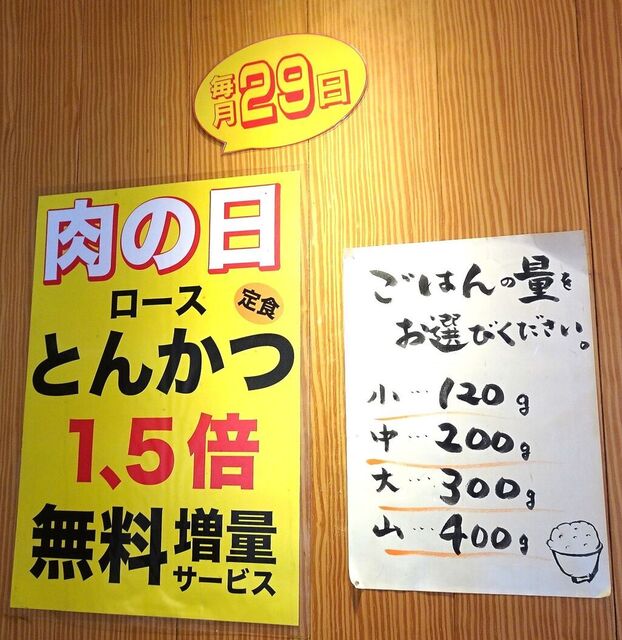 毎月29日
肉の日
ロース
定食
とんかつ
1、5倍
無料増量
サービス
ごはんの量を
お選びください。
小…120g
中…200g
大…300g
山…400g